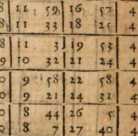 8 11 59 16 57 4
8 11 33 18 25 4
8 11 3 19 53 4
9 10 32 21 24
0 9 58 22 58 4
0 9 21 24 31
0 8 44 26 5
0 8 7 27 40